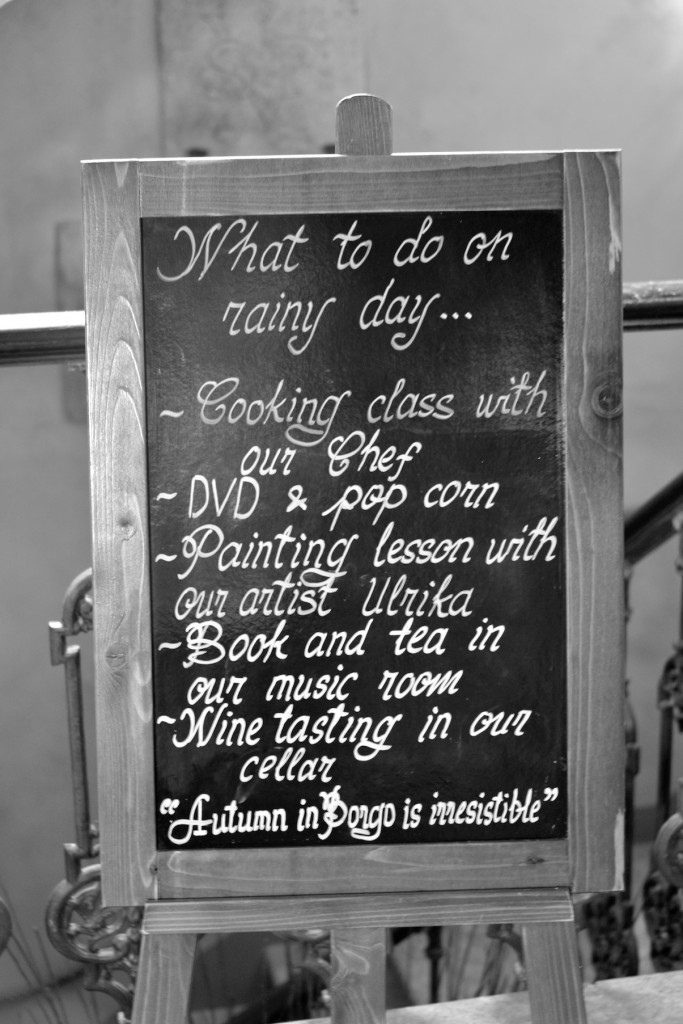 What to do on
rainy day...
~ Cooking class with
our Chef
~ DVD & pop corn
~ Painting lesson with
our artist Ulrika
~ Book and tea in
our music room
~ Wine tasting in our
cellar
"Autumn in Borgo is irresistible"